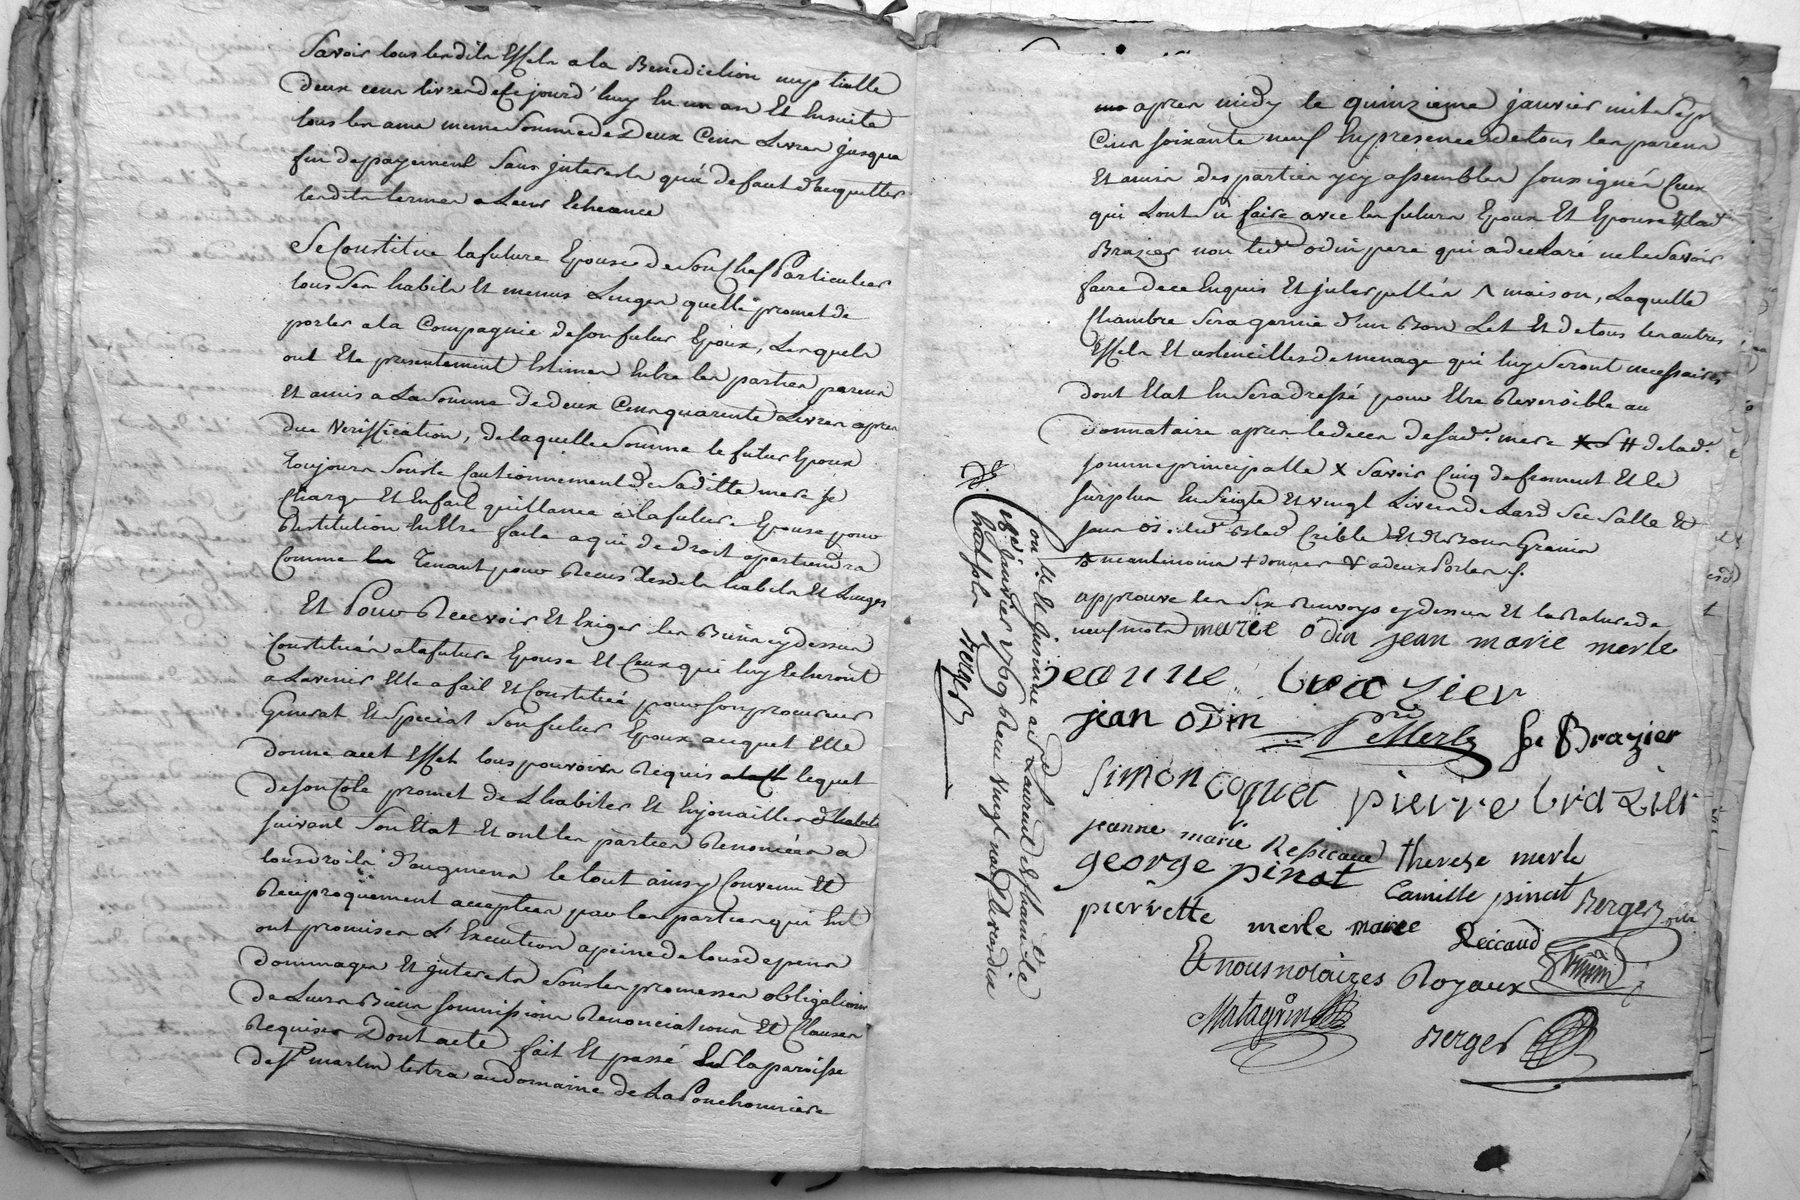 Savoir tous lesdits Effets a la Benediction nuptialle
deux cens livres de ce jourd'huy en un an Et Ensuite
tous les ans meme Somme de Deux Cens Livres jusqua
fin de payement Sans interests qu'a defaut d'acquitter
lesdits termes a Leur Echeance
Se Constitue la future Epouse de Son Chef Particulier
tous Ses habits Et menus Linges quelle promet de
porter a la Compagnie de son futur Epoux, Lesquels
ont Ete presentement Estimes Entre les parties parens
Et amis a La Somme de Deux Cens quarente Livres apres
due Veriffication, de laquelle Somme le futur Epoux
toujours Sous le Cautionnement de Saditte mere se
Charge Et En fait quittance a la future Epouse pour
Restitution En Etre faite a qui de droit apartiendra
Comme Tenant pour Recus Lesdits habits Et Linges
Et Pour Recevoir Et Exiger les Biens cy dessus
Constitués a la future Epouse Et Ceux qui luy Echeront
a L'avenir Elle a fait Et Constitué pour son procureur
General Et Special Son futur Epoux auquel Elle
donne a cet Effet tous pouvoirs Requis lequel
de son Coté promet de L'habiller Et Enjoailler
suivant Son Etat Et ont les parties Renoncées a
tous droits d'augmens le tout ainsy Convenu Et
Reciproquement acceptées par les parties qui En
ont promises L'Execution a peine de tous depens
dommages Et interests Sous les promesses obligations
de Leurs Biens soumissions Renonciations Et Clauses
Requises Dont acte fait Et passé En la paroisse
de St. martin lestra au domaine de La Ponchonniere
apres midy le quinzieme janvier mil sept
Cens soixante neuf En presence de tous les parens
Et amis des parties ycy assemblés soussignés Ceux
qui L'ont Sù faire avec les futurs Epoux Et Epouse Et lad.
Brazier non led. odin pere qui a declaré ne le Savoir
faire de ce Enquis Et interpellés maison, Laquelle
Chambre Sera garnie d'un Bon Lit Et de tous les autres
Effets Et ustencilles de menage qui luy Seront necessaires
dont Etat En Sera dressé pour Etre Reversible au
donnataire apres le deces de sad. mere # de lad.
somme principalle x Savoir Cinq de froment Et le
surplus En Seigle Et vingt Livres de Lard Sec Salle &
Crible Et de Bons Grains
neantmoins + donner a deux Portes
approuvé les Six Renvoys cy dessus Et la Rature de
neuf mots marie odin jean marie merle
jeanne brazier
jean odin Merle Brazier
Simon coquet pierre brazier
jeanne marie Respicaud therese merle
george pinat Camille pinat Berger
pierrette merle marie Reccaud
Et nous notaires Royaux
Matagrin Berger
Et Quinzaine au Laurent de Chamle
janvier 1769 Recu Vingt neuf livres dix
Berger